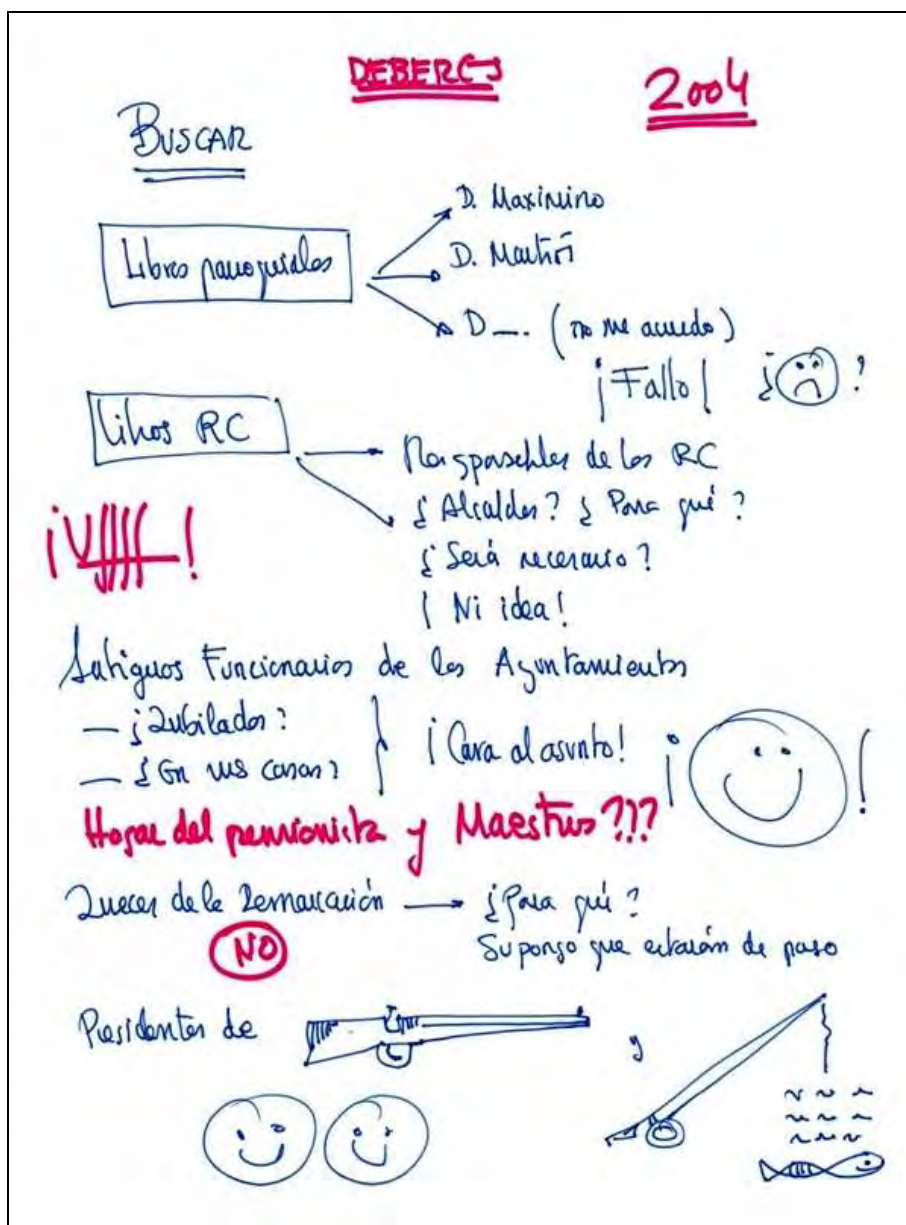 DEBERES
2004
BUSCAR
Libros parroquiales
D. Maximino
D. Martín
D__. (no me acuerdo)
¡Fallo! ¿ ?
Libros RC
Responsables de los RC
¿Alcaldes? ¿Para qué?
¿Será necesario?
¡Ni idea!
¡Uffff!
Antiguos Funcionarios de los Ayuntamientos
— ¿Jubilados?
— ¿En sus casas?
¡Cara al asunto! ¡ !
Hogar del pensionista y Maestros???
Jueces de la Demarcación → ¿Para qué?
NO
Supongo que estarán de paso
Presidentes de y